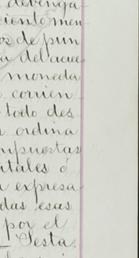 devenga
ciento men
os de pun
a del acue
moneda
corrien
todo des
ordina
mpuestas
itales ó
a expresa
das esas
por el
Testa